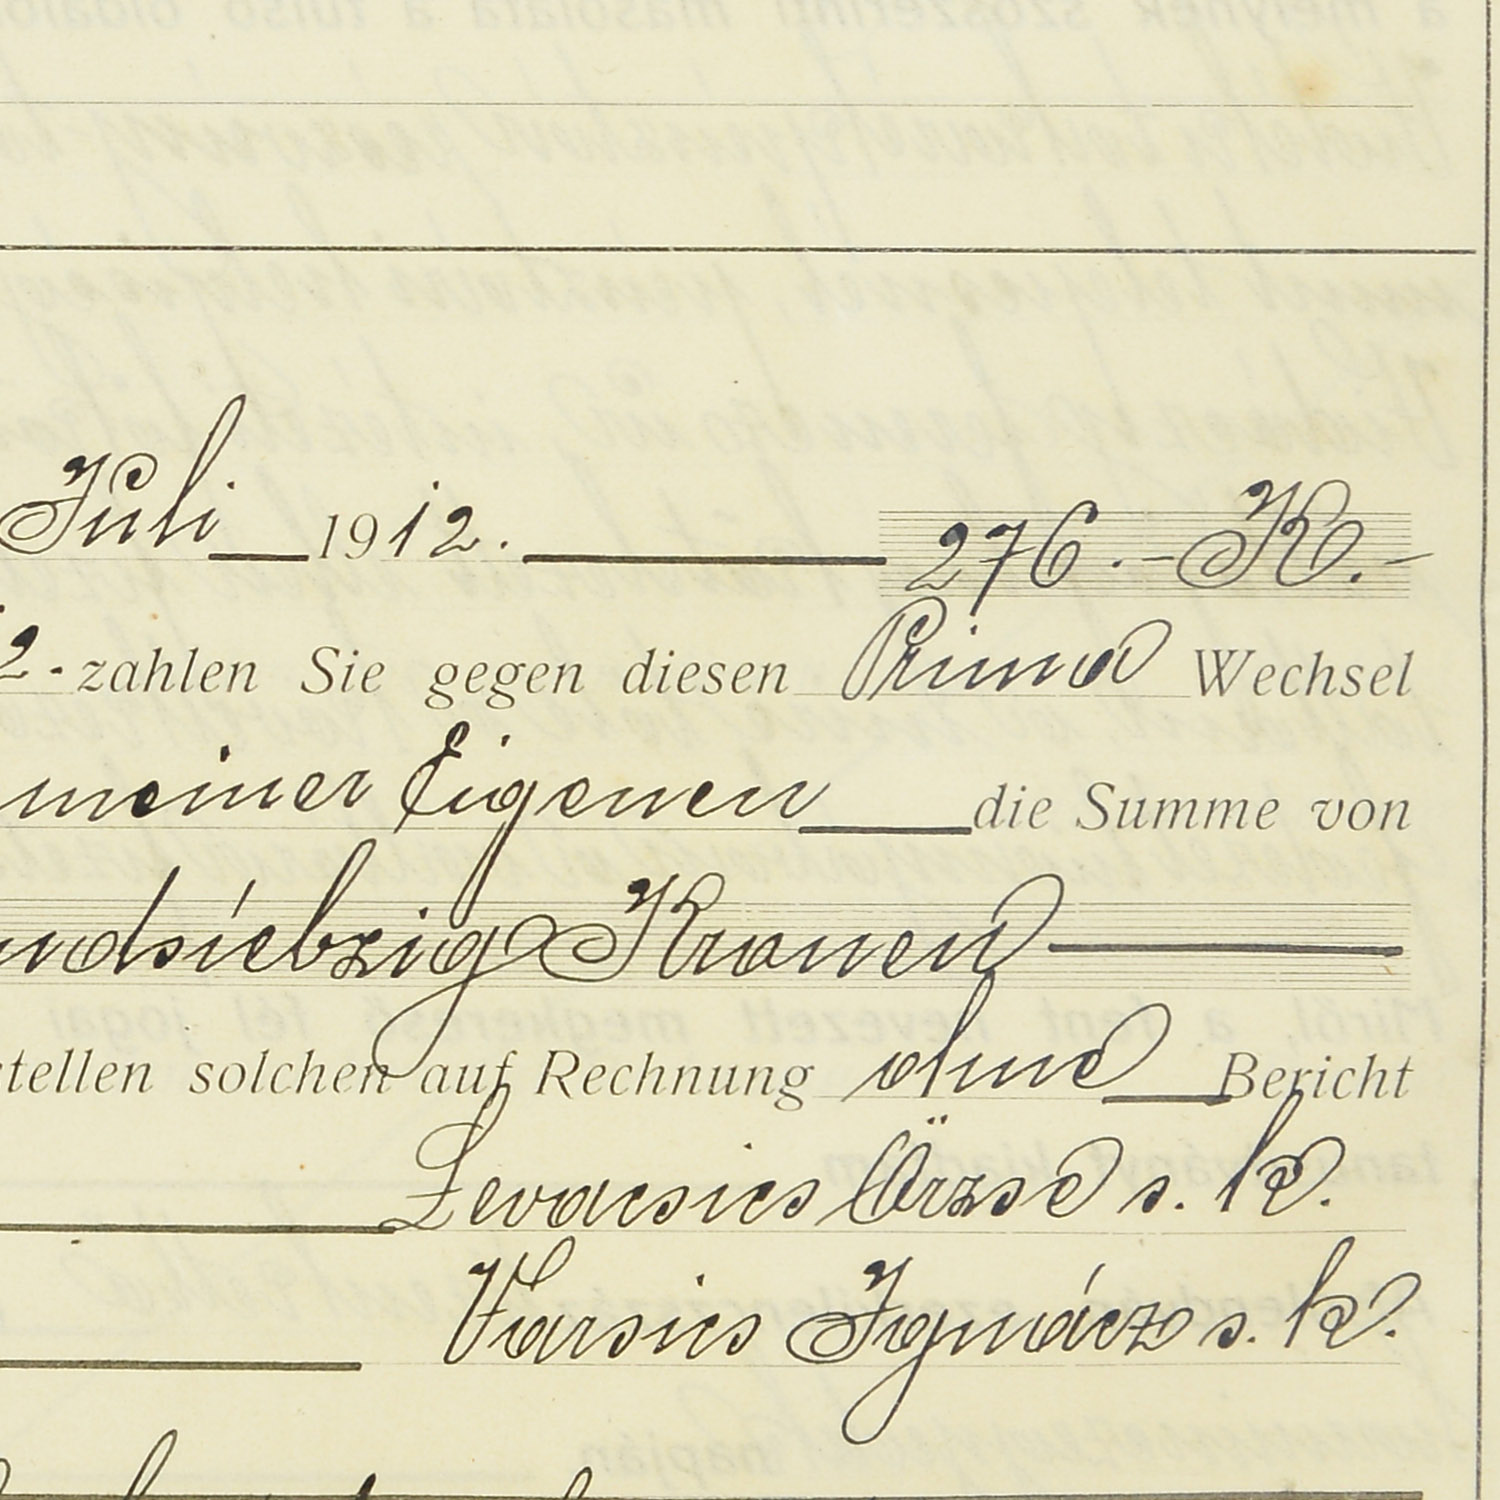 Juli 1912. 276.- K.-
2. zahlen Sie gegen diesen Prima Wechsel
meiner Eigenen die Summe von
undsiebzig Kronen
stellen solchen auf Rechnung ohne Bericht
Levacsics Örzse s. k.
Varsics Ignácz s. k.